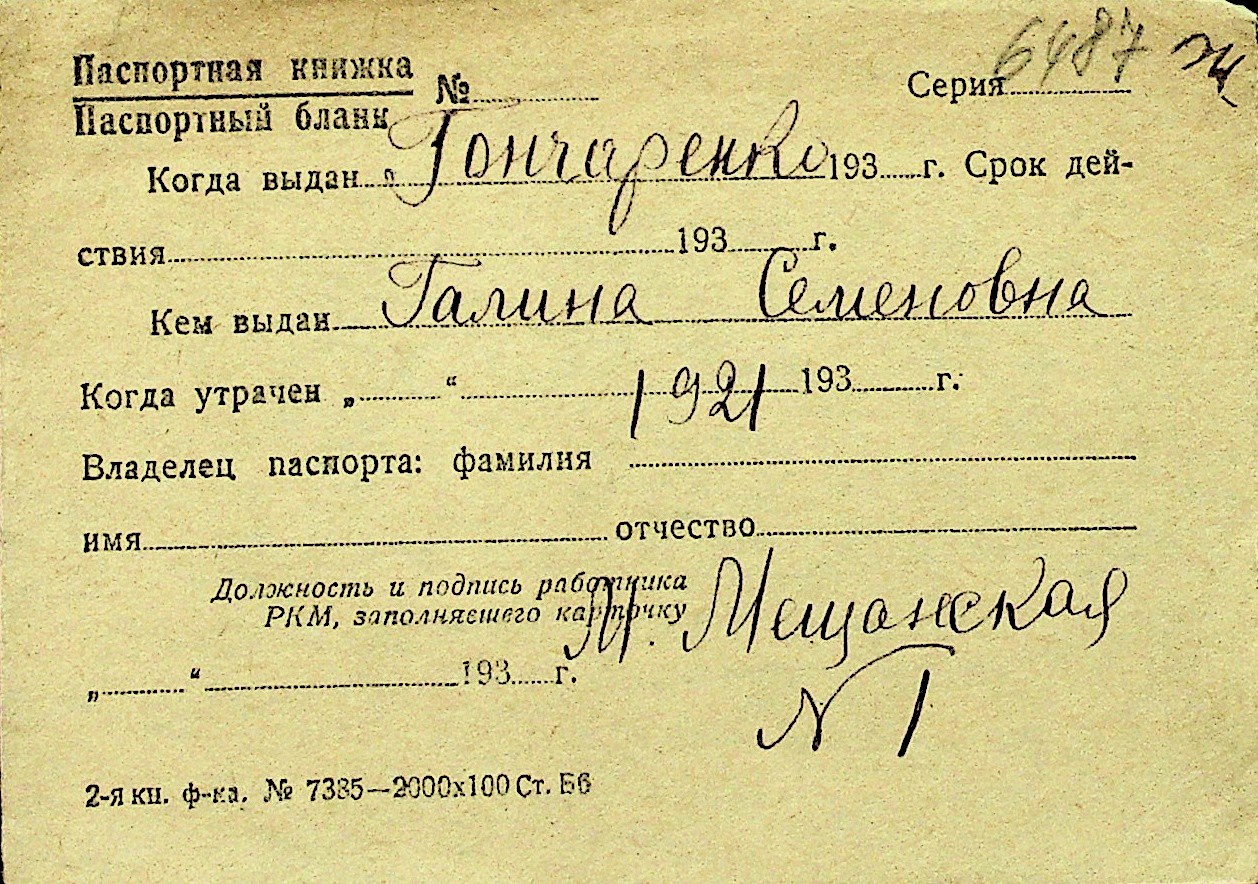 6487 Ж
Паспортная книжка
Паспортный бланк № Серия
Гончаренко
Когда выдан „ 193 г. Срок дей-
ствия 193 г.
Галина Семеновна
Кем выдан
Когда утрачен „ “ 193 г.
1921
Владелец паспорта: фамилия
имя отчество
Должность и подпись работника
РКМ, заполнявшего карточку
М. Мещанская
„ “ 193 г.
N 1
2-я кн. ф-ка. № 7385—2000х100 Ст. Бб